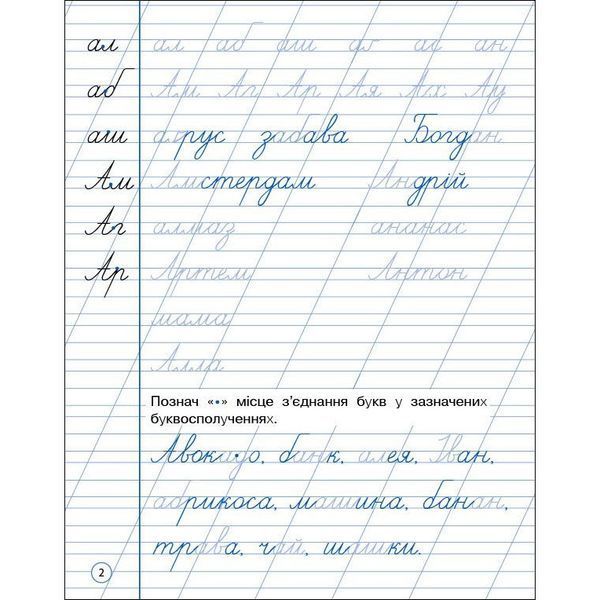 ал ал аб аш ав ас ан
аб Ам Аг Ар Ая Ах Ау
аш арус забава Богдан
Ам Амстердам Андрій
Аг алмаз ананас
Ар Артем Антон
мама
Алла
Познач «•» місце з’єднання букв у зазначених
буквосполученнях.
Авокадо, банк, алея, Іван,
абрикоса, машина, банан,
трава, чай, шашки.
2